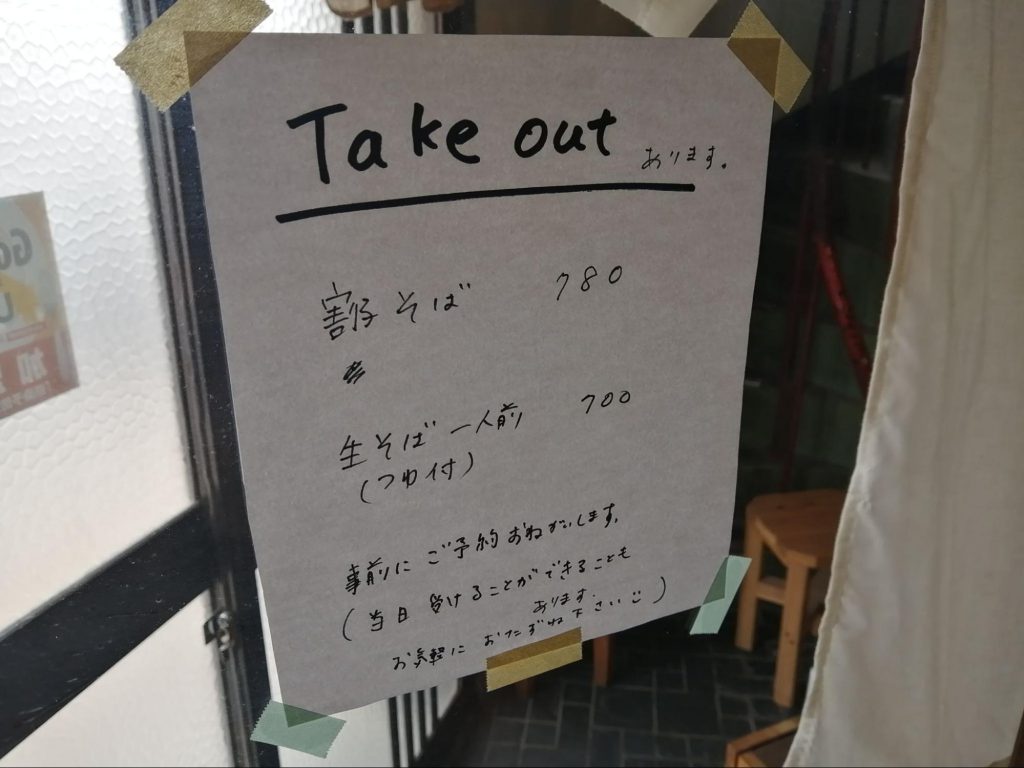 Take out あります。
割子そば 780
生そば 一人前 700
(つゆ付)
事前にご予約おねがいします。
(当日 受けることができることも
あります.
お気軽に おたずね下さい)
Go